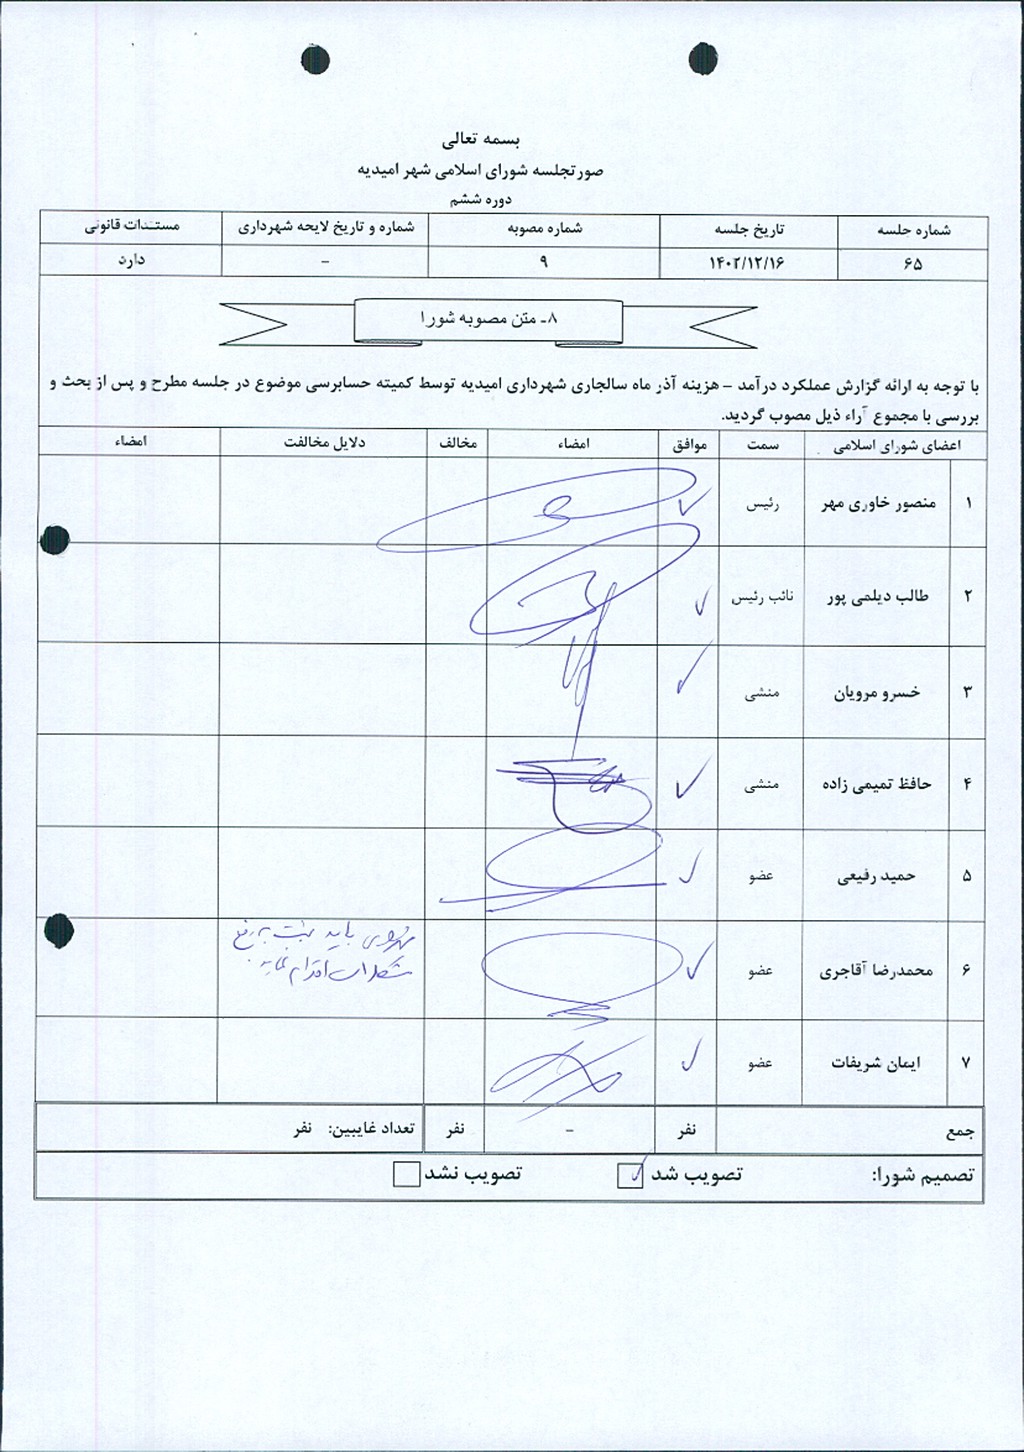 بسمه تعالی
صورتجلسه شورای اسلامی شهر امیدیه
دوره ششم
شماره جلسه تاریخ جلسه شماره مصوبه شماره و تاریخ لایحه شهرداری مستندات قانونی
۶۵ ۱۴۰۲/۱۲/۱۶ ۹ - دارد
۸- متن مصوبه شورا
با توجه به ارائه گزارش عملکرد درآمد - هزینه آذر ماه سالجاری شهرداری امیدیه توسط کمیته حسابرسی موضوع در جلسه مطرح و پس از بحث و
بررسی با مجموع آراء ذیل مصوب گردید.
اعضای شورای اسلامی سمت موافق امضاء مخالف دلایل مخالفت امضاء
۱ منصور خاوری مهر رئیس
۲ طالب دیلمی پور نائب رئیس
۳ خسرو مرویان منشی
۴ حافظ تمیمی زاده منشی
۵ حمید رفیعی عضو
۶ محمدرضا آقاجری عضو
باید نسبت به رفع
مشکلات اقدام نماید.
۷ ایمان شریفات عضو
جمع نفر - نفر تعداد غایبین: نفر
تصمیم شورا: تصویب شد تصویب نشد